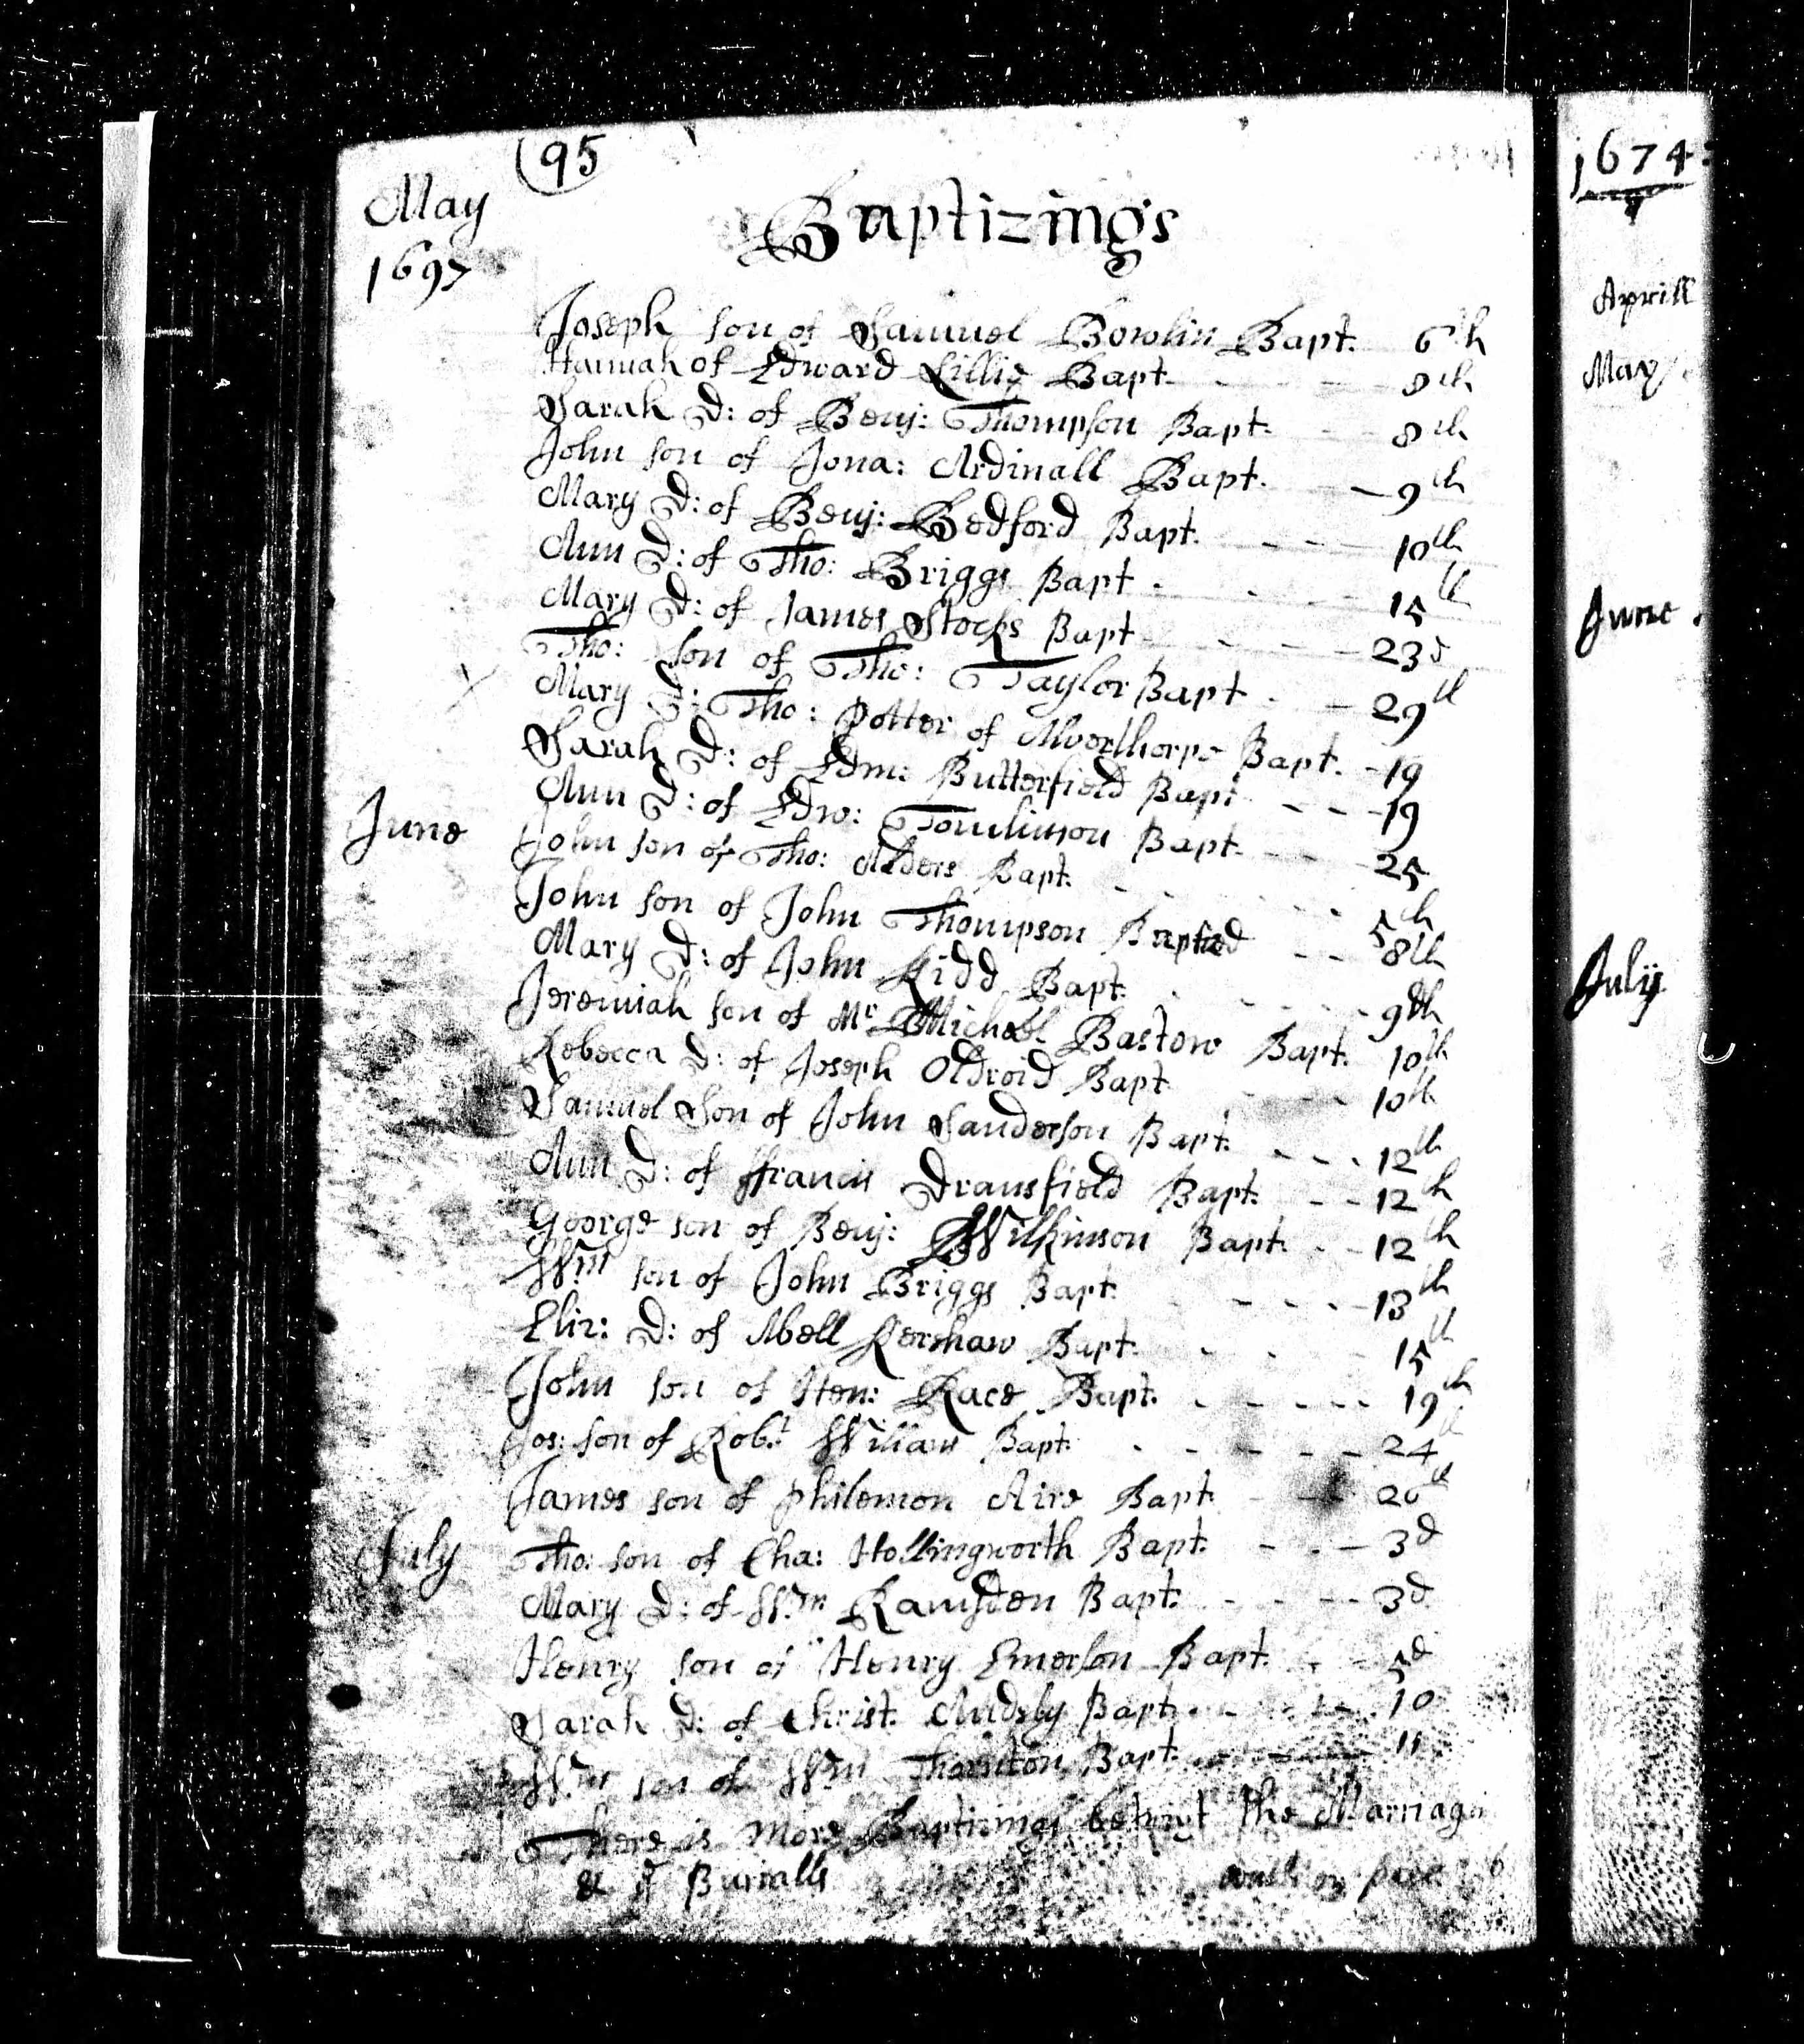 (95
May
1697
Baptizings
Joseph son of Samuel Bowlin Bapt. 6th
Hannah of Edward Lillie Bapt. 8th
Sarah D: of Benj: Thompson Bapt. 8th
John son of Jona: Ardinall Bapt. 9th
Mary D: of Benj: Bedford Bapt. 10th
Ann D: of Tho: Briggs Bapt. 15th
Mary D: of James Stocks Bapt 23d
Tho: son of Tho: Taylor Bapt 29th
Mary D: Tho: Potter of Moorthorpe Bapt. 19
Sarah D: of Edm: Butterfield Bapt 19
Ann D: of Edw: Tomlinson Bapt. 25
June John son of Tho: Alders Bapt. 5th
John son of John Thompson Baptized 8th
Mary D: of John Kidd Bapt. 9th
Jeremiah son of Mr Michael Bastow Bapt. 10th
Rebecca D: of Joseph Oldroid Bapt 10th
Samuel Son of John Sanderson Bapt. 12th
Ann D: of ffrancis Dransfield Bapt. 12th
George son of Benj: Wilkinson Bapt. 12th
Wm son of John Briggs Bapt. 13th
Eliz: D: of Abell Kershaw Bapt. 15th
John son of Hen: Race Bapt. 19th
Jos: son of Robt Wiliam Bapt. 24th
James son of Philemon Aire Bapt. 26th
July Tho: son of Cha: Hollingworth Bapt. 3d
Mary D: of Wm Ramsden Bapt. 3d
Henry son of Henry Emerson Bapt. 5d
Sarah D: of Christ. Audsby Bapt. 10
Wm son of Wm Thornton Bapt. 11
There is More Baptizings betwixt the Marriages
& ye Burialls
1674
Aprill
May
June
July